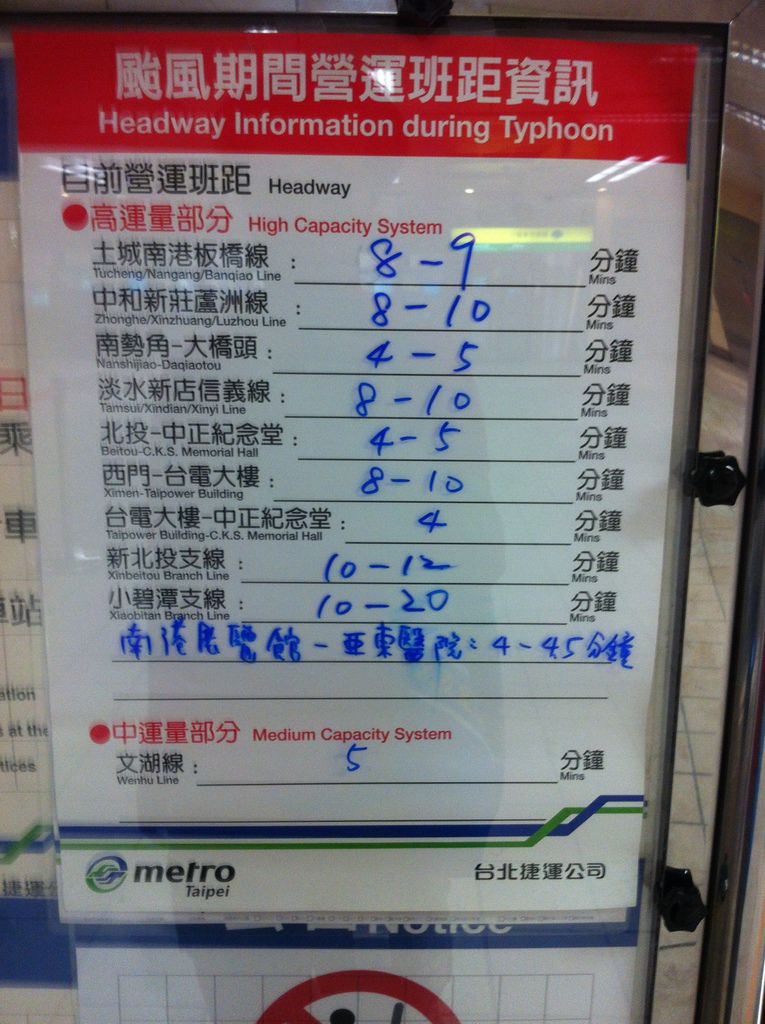 颱風期間營運班距資訊
Headway Information during Typhoon
目前營運班距 Headway
●高運量部分 High Capacity System
土城南港板橋線 : 8-9 分鐘
Tucheng/Nangang/Banqiao Line Mins
中和新莊蘆洲線 : 8-10 分鐘
Zhonghe/Xinzhuang/Luzhou Line Mins
南勢角-大橋頭 : 4-5 分鐘
Nanshijiao-Daqiaotou Mins
淡水新店信義線 : 8-10 分鐘
Tamsui/Xindian/Xinyi Line Mins
北投-中正紀念堂 : 4-5 分鐘
Beitou-C.K.S. Memorial Hall Mins
西門-台電大樓 : 8-10 分鐘
Ximen-Taipower Building Mins
台電大樓-中正紀念堂 : 4 分鐘
Taipower Building-C.K.S. Memorial Hall Mins
新北投支線 : 10-12 分鐘
Xinbeitou Branch Line Mins
小碧潭支線 : 10-20 分鐘
Xiaobitan Branch Line Mins
南港展覽館-亞東醫院: 4-4.5分鐘
●中運量部分 Medium Capacity System
文湖線 : 5 分鐘
Wenhu Line Mins
metro
Taipei
台北捷運公司
Notice
日
乘
車
站
ation
s at the
tices
捷運